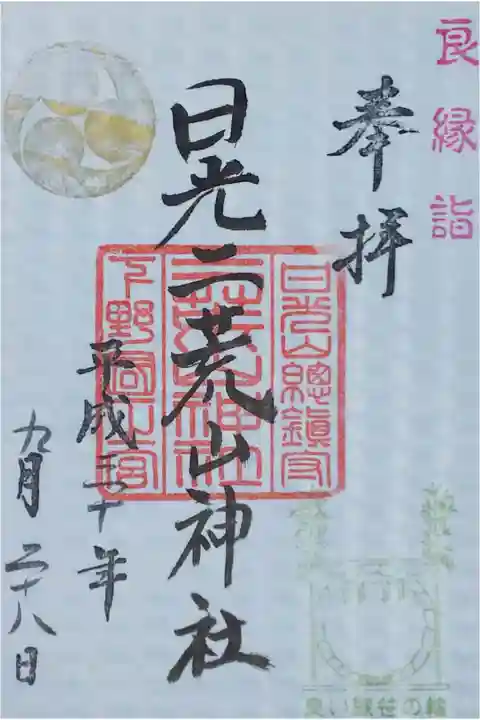 良縁詣
奉拝
日光二荒山神社
日光山總鎮守
二荒山神社
下野國一宮
平成三十年
九月二十八日
良い縁笹の輪